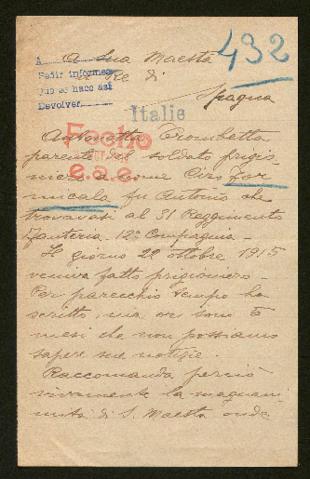 A Sua Maesta
432
il Re di
A
Pedir informes
Que se hace así
Devolver
Spagna
Italie
Antonetta Trombetta
Fecho
parente del soldato prigio
e.s.c.
niero a nome Ciro For
micola fu Antonio che
trovavasi al 31 Reggimento
Fanteria 12a Compagnia -
Il giorno 22 ottobre 1915
veniva fatto prigioniero -
Per parecchio tempo ha
scritto, ma or sono 5
mesi che non possiamo
sapere sue notizie.
Raccomanda perciò
vivamente la magnani
mità di S. Maestà onde